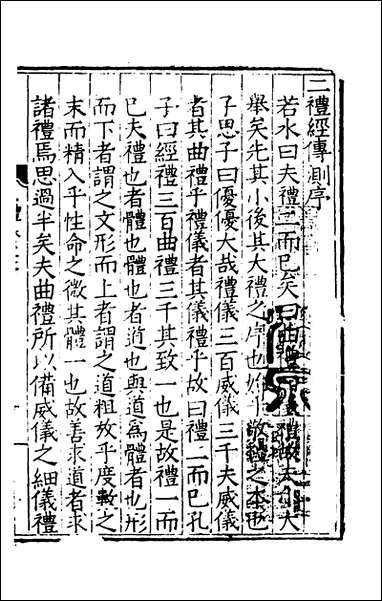 二禮經傳測序
若水曰夫禮二而已矣曰曲禮
舉矣先其小後其大禮之序也始於敬禮之本也
子思子曰優優大哉禮儀三百威儀三千夫威儀
者其曲禮乎禮儀者其儀禮乎故曰禮二而已孔
子曰經禮三百曲禮三千其致一也是故禮一而
已夫禮也者體也體也者道也與道為體者也形
而下者謂之文形而上者謂之道粗放乎度數之
末而精入乎性命之微其體一也故善求道者求
諸禮焉思過半矣夫曲禮所以備威儀之細儀禮